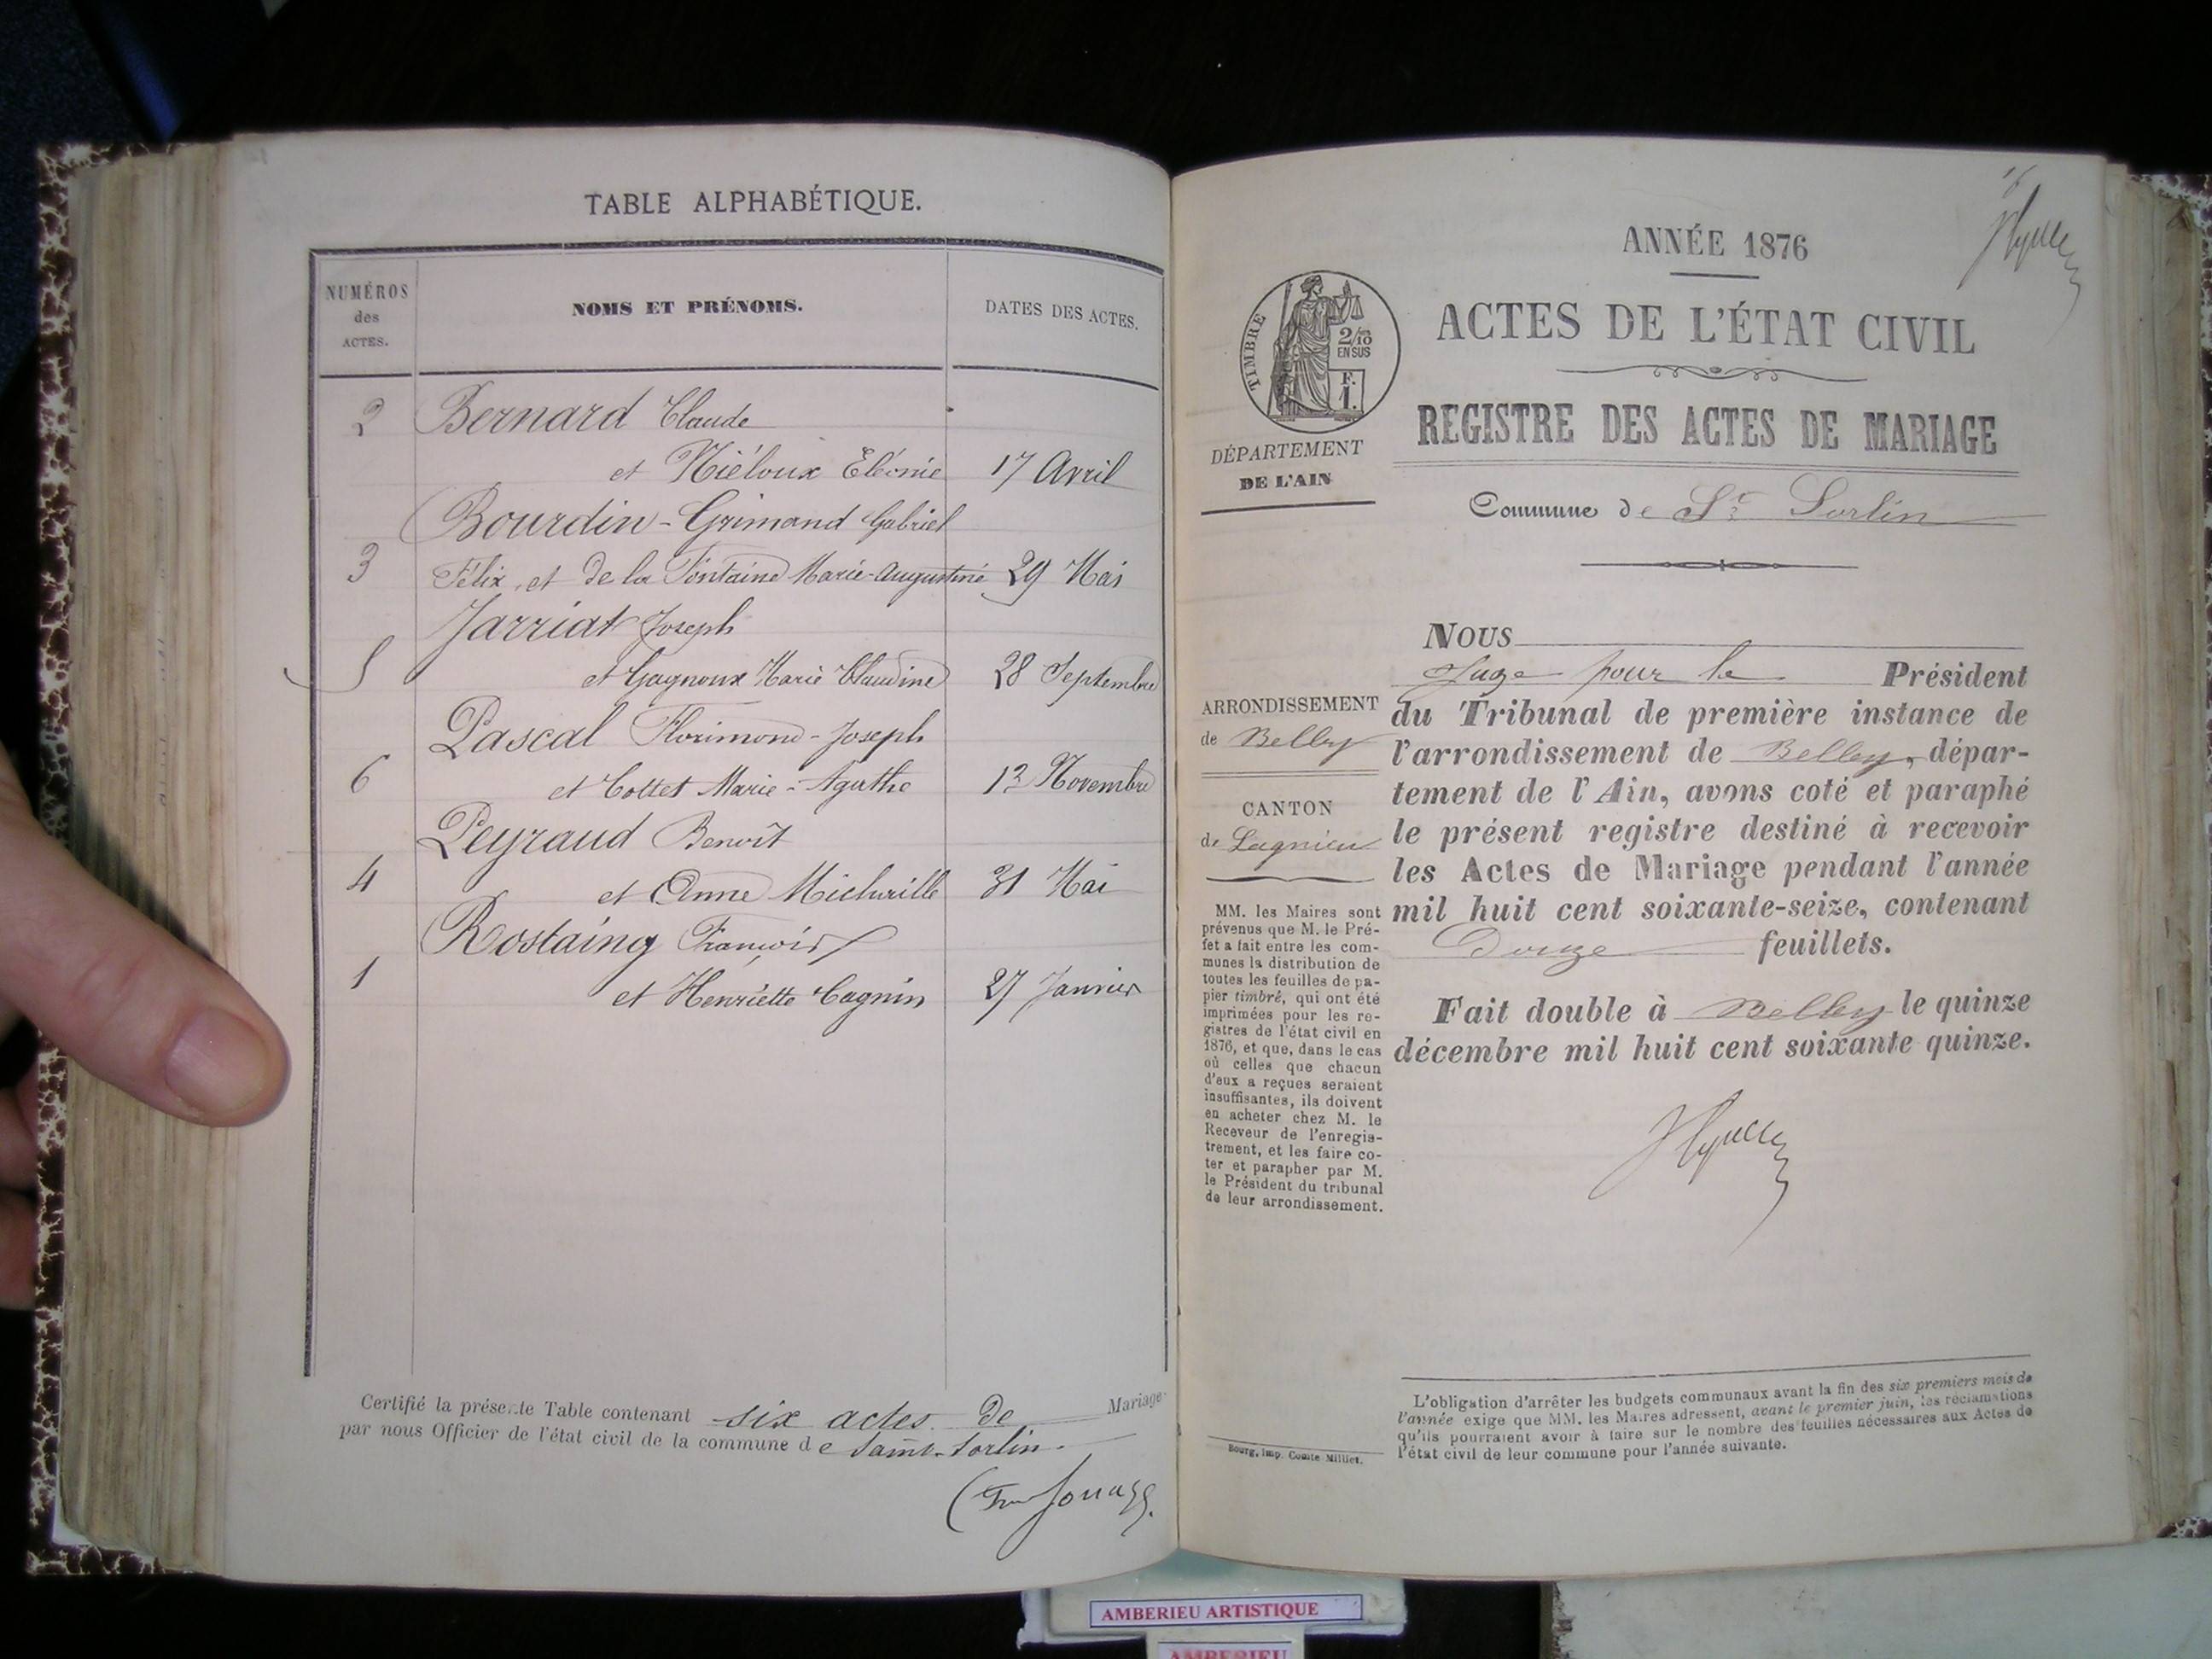 TABLE ALPHABÉTIQUE.
NUMÉROS
des
ACTES.
NOMS ET PRÉNOMS.
DATES DES ACTES.
2 Bernard Claude
et Niéloux Eléonie 17 Avril
Bourdin-Grimand Gabriel
3 Félix, et de la Fontaine Marie-Augustine 29 Mai
Jarriat Joseph
5 et Gagnoux Marie Claudine 28 Septembre
Pascal Florimond-Joseph
6 et Cottet Marie-Agathe 13 Novembre
Peyraud Benoît
4 et Anne Michuille 31 Mai
Rostaing François
1 et Henriette Cagnin 27 Janvier
Certifié la présente Table contenant six actes de Mariage
par nous Officier de l'état civil de la commune de Saint-Sorlin.
ANNÉE 1876
TIMBRE
2/10
EN SUS
F.
1.
ACTES DE L'ÉTAT CIVIL
REGISTRE DES ACTES DE MARIAGE
DÉPARTEMENT
DE L'AIN
Commune de St Sorlin
ARRONDISSEMENT
de Belley
CANTON
de Lagnieu
MM. les Maires sont
prévenus que M. le Pré-
fet a fait entre les com-
munes la distribution de
toutes les feuilles de pa-
pier timbré, qui ont été
imprimées pour les re-
gistres de l'état civil en
1876, et que, dans le cas
où celles que chacun
d'eux a reçues seraient
insuffisantes, ils doivent
en acheter chez M. le
Receveur de l'enregis-
trement, et les faire co-
ter et parapher par M.
le Président du tribunal
de leur arrondissement.
Bourg, imp. Comte Milliet.
NOUS
Juge pour le Président
du Tribunal de première instance de
l'arrondissement de Belley, dépar-
tement de l'Ain, avons coté et paraphé
le présent registre destiné à recevoir
les Actes de Mariage pendant l'année
mil huit cent soixante-seize, contenant
Douze feuillets.
Fait double à Belley le quinze
décembre mil huit cent soixante quinze.
L'obligation d'arrêter les budgets communaux avant la fin des six premiers mois de
l'année exige que MM. les Maires adressent, avant le premier juin, les réclamations
qu'ils pourraient avoir à faire sur le nombre des feuilles nécessaires aux Actes de
l'état civil de leur commune pour l'année suivante.
AMBERIEU ARTISTIQUE
AMBERIEU